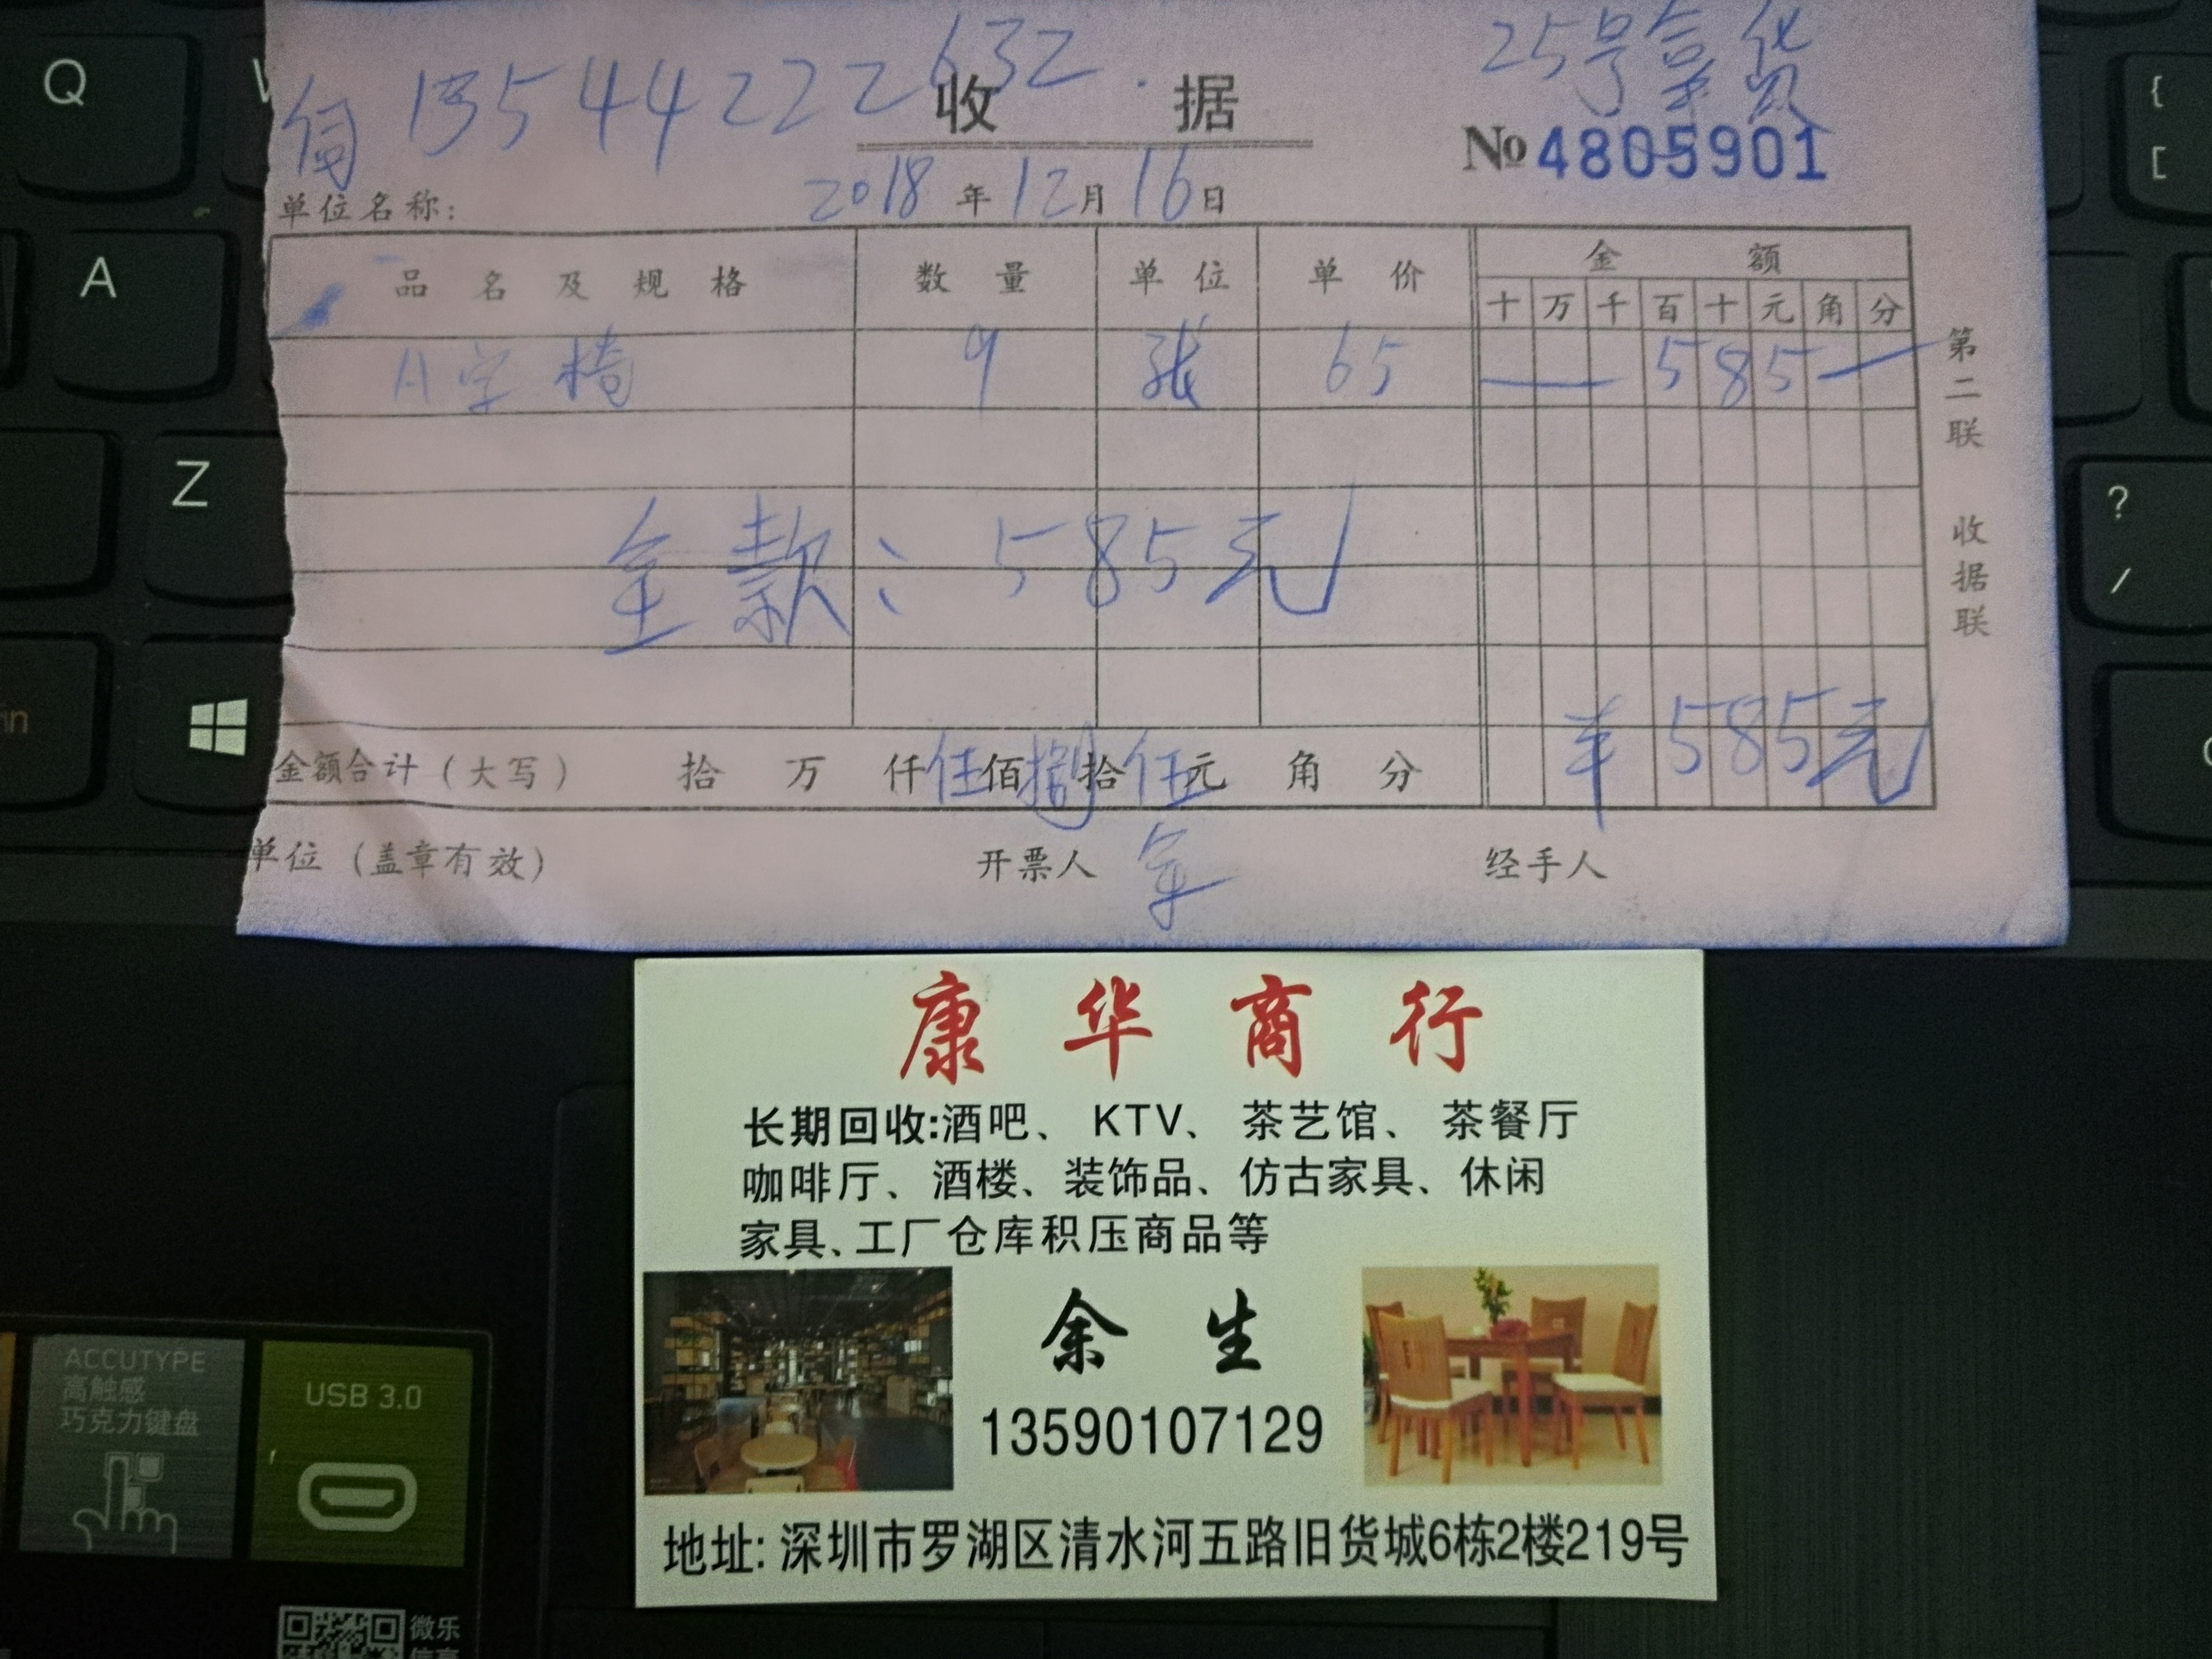 Q
A
Z
{
[
?
/
25号拿货
13544222632.
收 据
№4805901
2018 年 12 月 16 日
单位名称:
品 名 及 规 格 数 量 单 位 单 价 金 额
十 万 千 百 十 元 角 分
A字椅 9 张 65 585
全款: 585元
¥585元
金额合计(大写) 拾 万 仟 伍 佰 捌 拾 伍 元 角 分
单位(盖章有效) 开票人 经手人
第二联 收据联
康华商行
长期回收:酒吧、 KTV、 茶艺馆、 茶餐厅
咖啡厅、酒楼、装饰品、仿古家具、休闲
家具、工厂仓库积压商品等
余 生
13590107129
地址: 深圳市罗湖区清水河五路旧货城6栋2楼219号
ACCUTYPE
高触感
巧克力键盘
USB 3.0
微乐